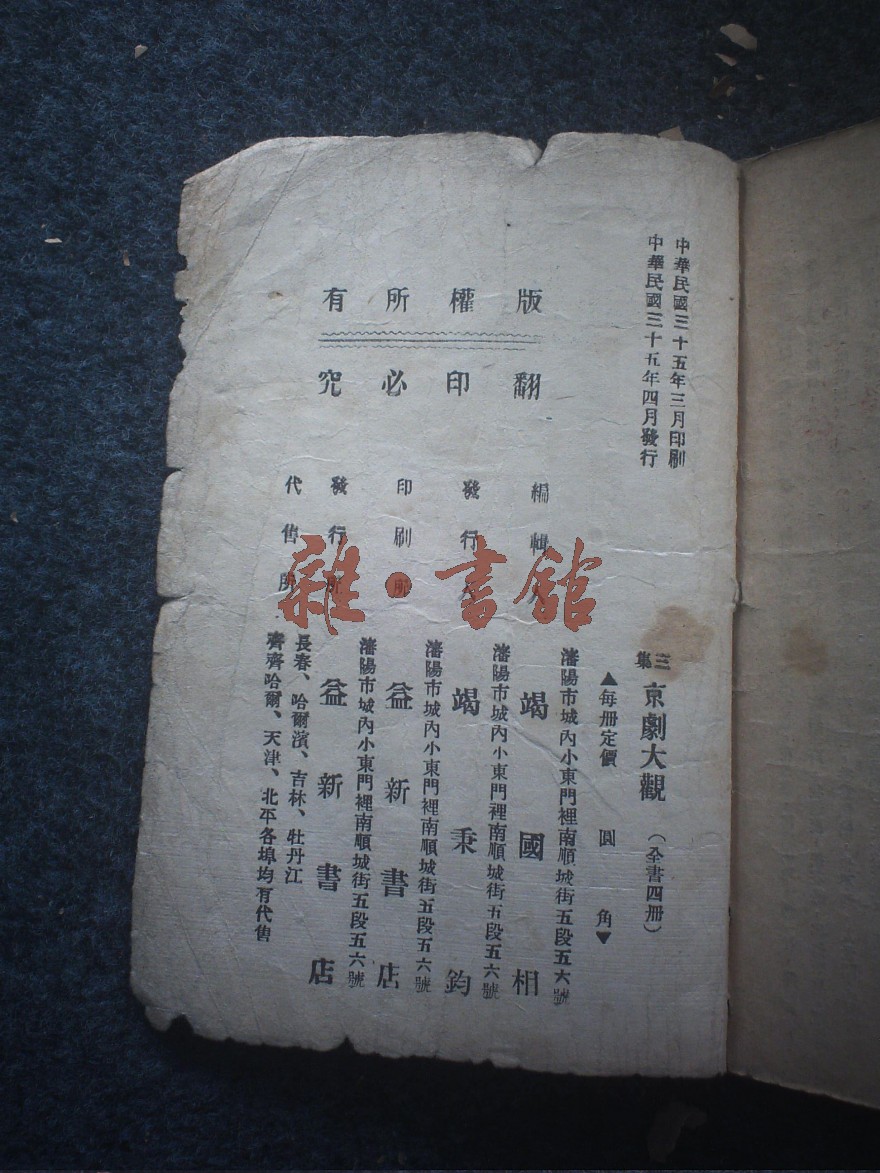 中華民國三十五年三月印刷
中華民國三十五年四月發行
版權所有
翻印必究
三集 京劇大觀 (全書四册)
▲每册定價 圓 角▼
編輯人 瀋陽市城內小東門裡南順城街五段五六號
竭國相
發行人 瀋陽市城內小東門裡南順城街五段五六號
竭秉鈞
印刷所 瀋陽市城內小東門裡南順城街五段五六號
益新書店
發行所 瀋陽市城內小東門裡南順城街五段五六號
益新書店
代售所 長春、哈爾濱、吉林、牡丹江
齊齊哈爾、天津、北平各埠均有代售
雜·書館